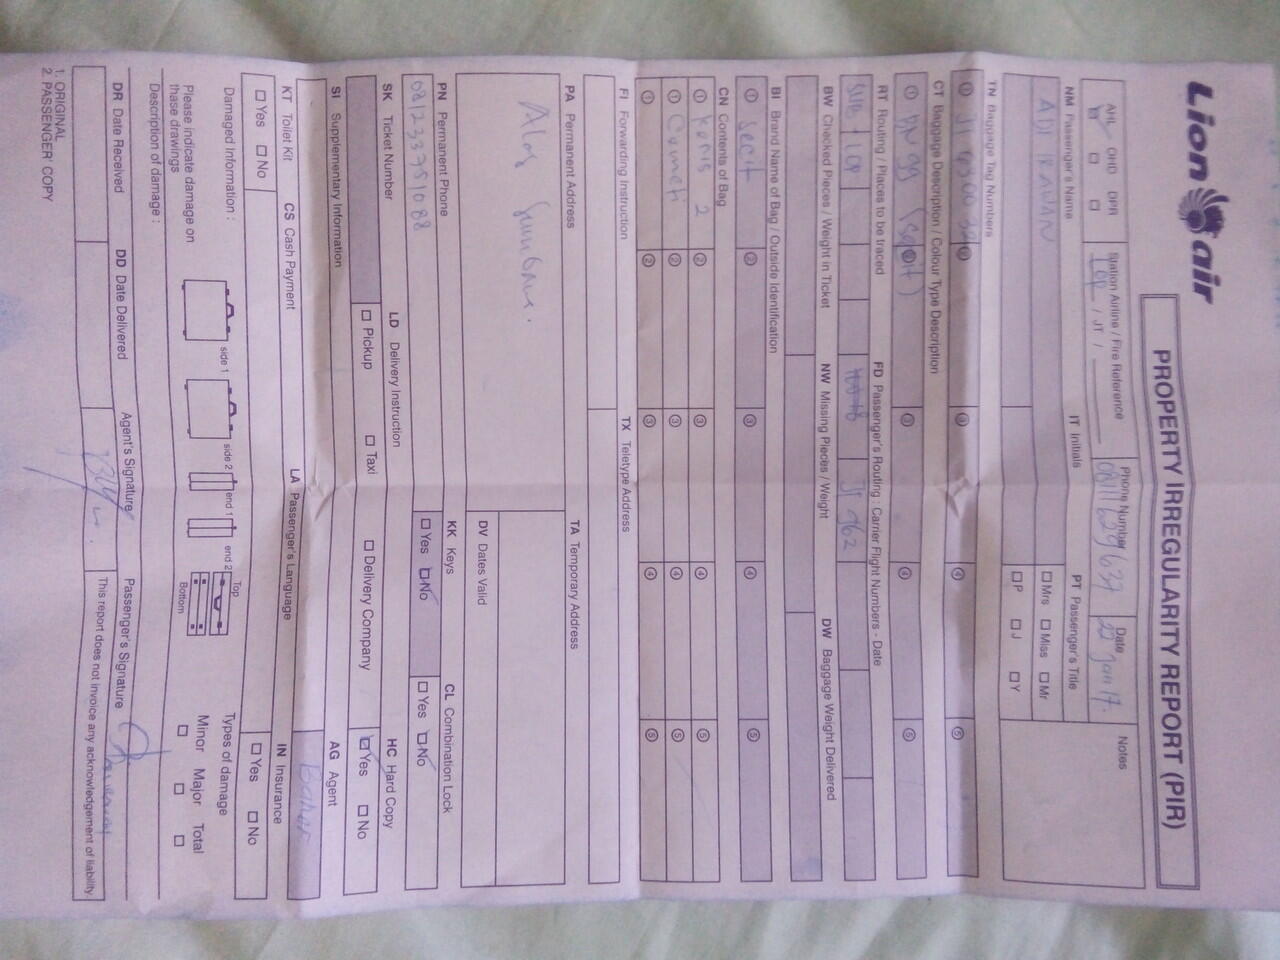 Lion air
PROPERTY IRREGULARITY REPORT (PIR)
AHL OHD DPR
Station Airline / Fire Reference
LOP / JT /
Phone Number
Date
22 Jan 17.
Notes
NM Passenger's Name
ADI IRAWAN
IT Initials
PT Passenger's Title
Mrs Miss Mr
P J Y
TN Baggage Tag Numbers
① ② ③ ④ ⑤
CT Baggage Description / Colour Type Description
① ② ③ ④ ⑤
RT Routing / Places to be traced
SUB - LOP
FD Passenger's Routing : Carrier Flight Numbers - Date
JT 962
BW Checked Pieces / Weight in Ticket
NW Missing Pieces / Weight
DW Baggage Weight Delivered
BI Brand Name of Bag / Outside Identification
① ② ③ ④ ⑤
CN Contents of Bag
① ② ③ ④ ⑤
① ② ③ ④ ⑤
① ② ③ ④ ⑤
FI Forwarding Instruction
TX Teletype Address
PA Permanent Address
TA Temporary Address
Alas Sumbawa.
DV Dates Valid
PN Permanent Phone
081233751088
KK Keys
Yes No
CL Combination Lock
Yes No
SK Ticket Number
LD Delivery Instruction
Pickup Taxi Delivery Company
HC Hard Copy
Yes No
SI Supplementary Information
AG Agent
KT Toilet Kit
Yes No
CS Cash Payment
LA Passenger's Language
IN Insurance
Yes No
Damaged Information :
Types of damage
Minor Major Total
Please indicate damage on
these drawings
side 1 side 2 end 1 end 2 Top
Bottom
Description of damage :
DR Date Received
DD Date Delivered
Agent's Signature
Passenger's Signature
This report does not invoice any acknowledgement of liability
1. ORIGINAL
2. PASSENGER' COPY